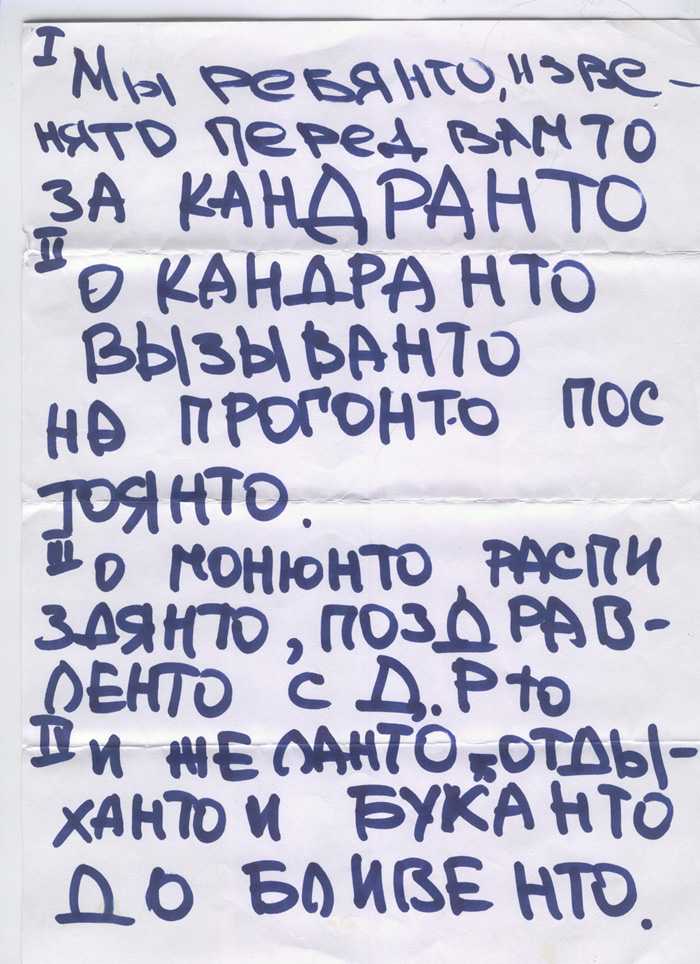 I
Мы РЕБЯНТО, ИЗВЕ-
НЯТО ПЕРЕД ВАМТО
ЗА КАНДРАНТО
II
О КАНДРАНТО
ВЫЗЫВАНТО
НА ПРОГОНТО ПОС
ТОЯНТО.
III О МОНЮНТО РАСПИ
ЗДЯНТО, ПОЗДРАВ-
ЛЕНТО С Д.РТО
IV И ЖЕЛАНТО ОТДЫ-
ХАНТО И БУКАНТО
ДО БЛИВЕНТО.